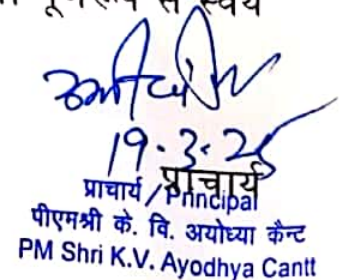 से स्वयं
19.3.25
प्राचार्य
प्राचार्य / Principal
पीएमश्री के. वि. अयोध्या कैन्ट
PM Shri K.V. Ayodhya Cantt